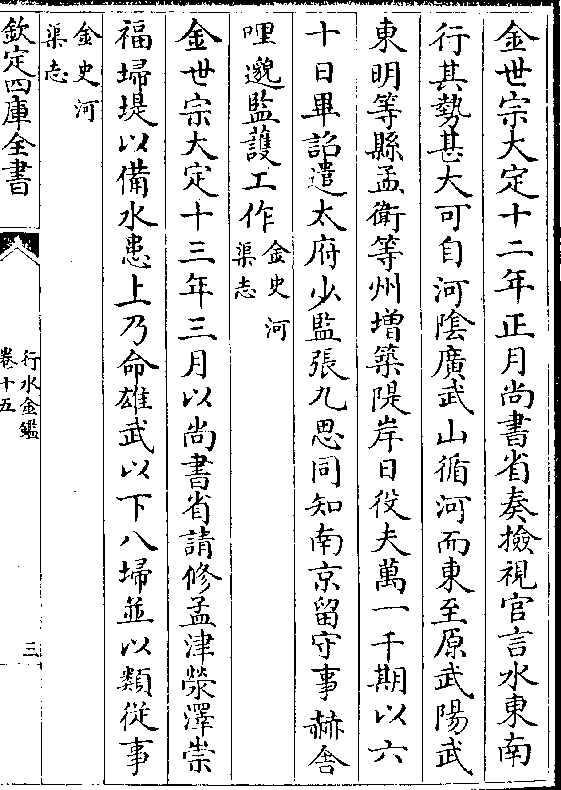 金世宗大定十二年正月尚書省奏撿視官言水東南
行其勢甚大可自河陰廣武山循河而東至原武陽武
東明等縣孟衛等州增築隄岸日役夫萬一千期以六
十日畢詔遣太府少監張九思同知南京留守事赫舍
哩邈監護工作金史河
渠志
金世宗大定十三年三月以尚書省請修孟津滎澤崇
福埽堤以備水患上乃命雄武以下八埽並以類從事
金史河
渠志
欽定四庫全書
行水金鑑
卷十五
三